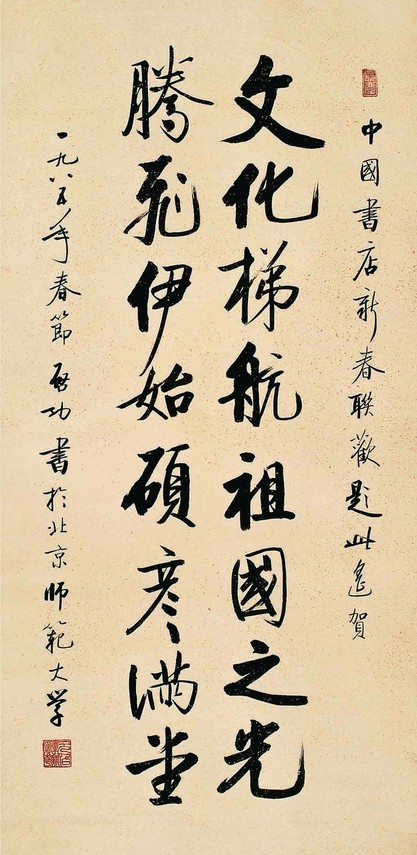 中國書店新春聯歡題此遙賀
文化梯航祖國之光
騰飛伊始碩彥滿堂
一九八五年春節啟功書於北京師範大学